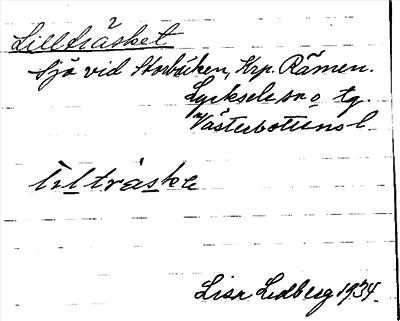 Lillträsket
Sjö vid Storbäcken, Krp. Råmen.
Lycksele sn o tg.
Västerbottens l.
lil träske
Lisa Lidberg 1934.